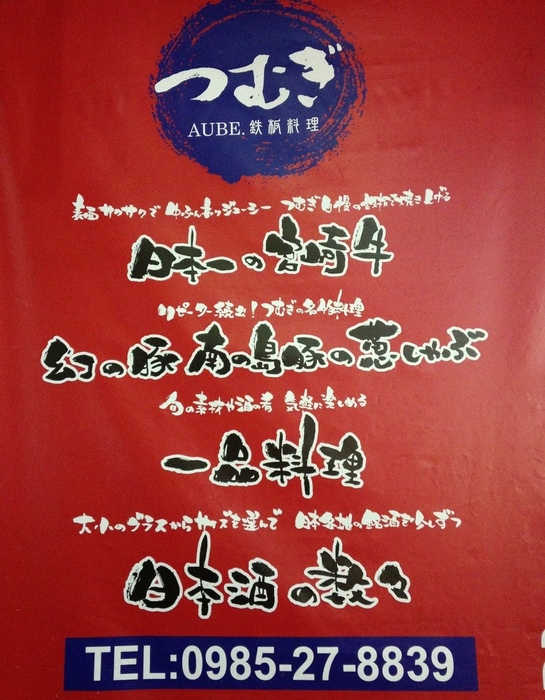 つむぎ
AUBE. 鉄板料理
表面サクサクで 中ふんわりジューシー つむぎ自慢の鉄板で焼き上げる
日本一の宮崎牛
リピーター続出！つむぎの名物料理
幻の豚 南の島豚の葱しゃぶ
旬の素材や酒の肴 気軽に楽しめる
一品料理
大・小のグラスからサイズを選んで 日本各地の銘酒を少しずつ
日本酒の数々
TEL:0985-27-8839